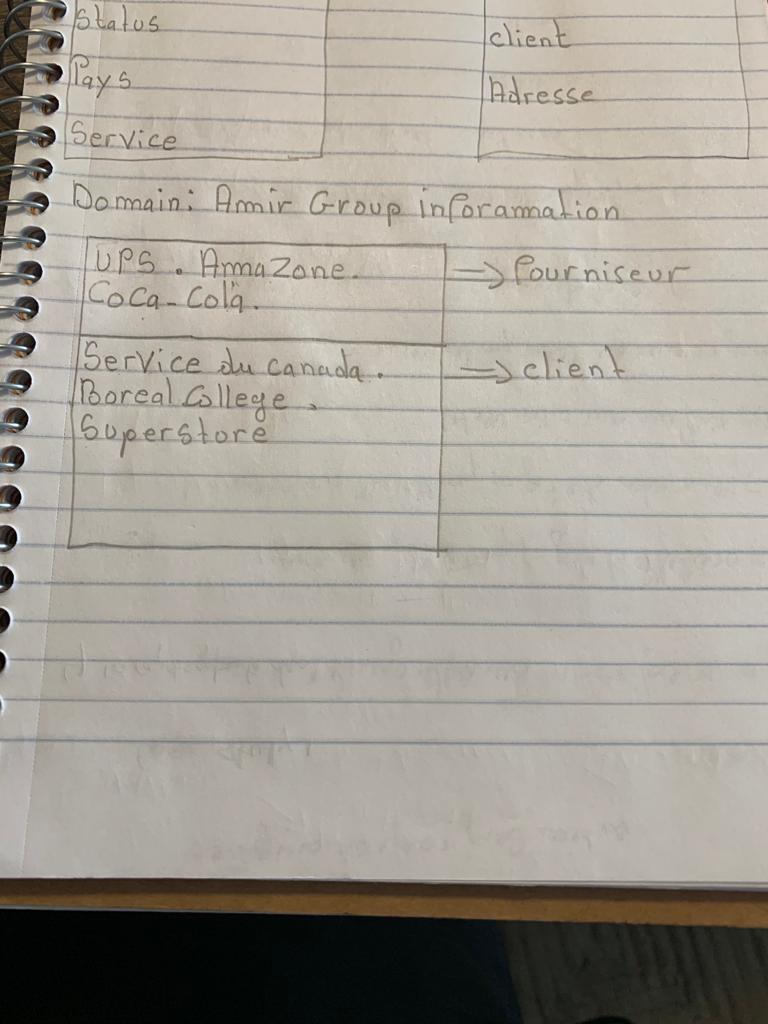 Status
Pays
Service
client
Adresse
Domain: Amir Group inforamation
UPS. ArmaZone.
CoCa-Cola.
=> fourniseur
Service du canada.
Boreal College,
Superstore
=> client